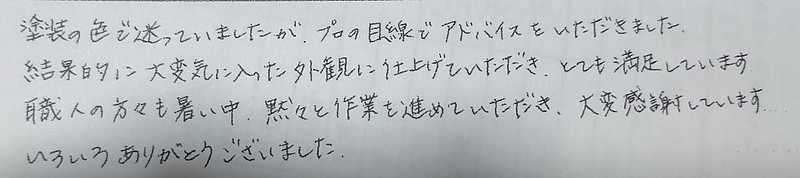 塗装の色で迷っていましたが、プロの目線でアドバイスをいただきました。
結果的に大変気に入った外観に仕上げていただき、とても満足しています
職人の方々も暑い中、黙々と作業を進めていただき、大変感謝しています…
いろいろありがとうございました。